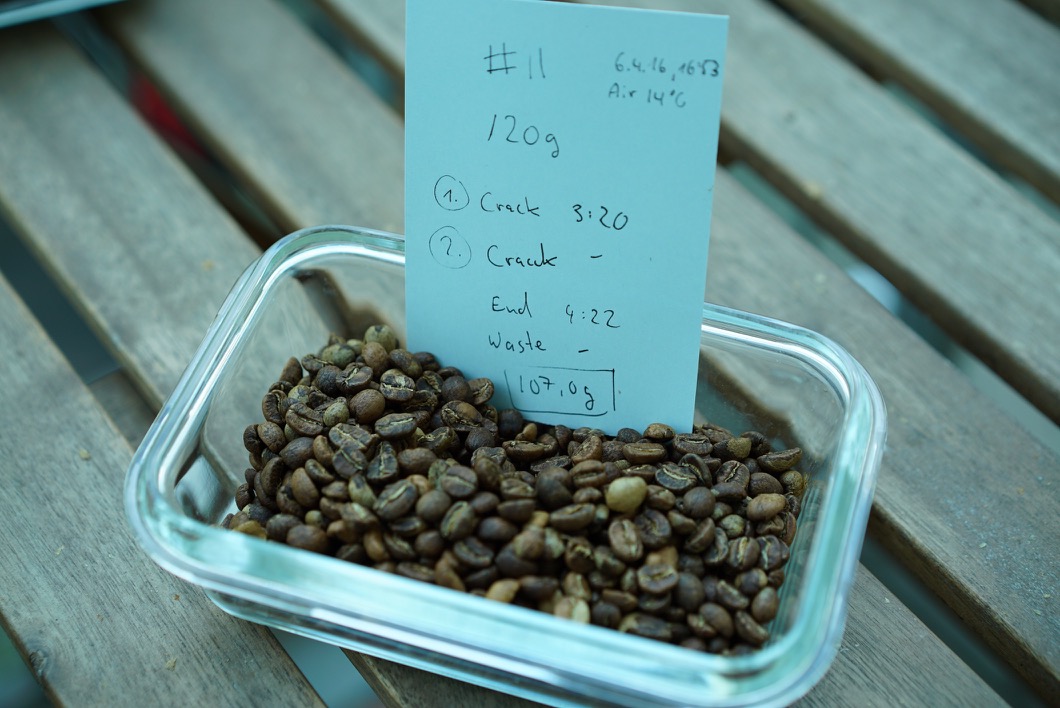 #11
6.4.16, 1653
Air 14°C
120g
1. Crack 3:20
2. Crack -
End 4:22
Waste -
107,0g